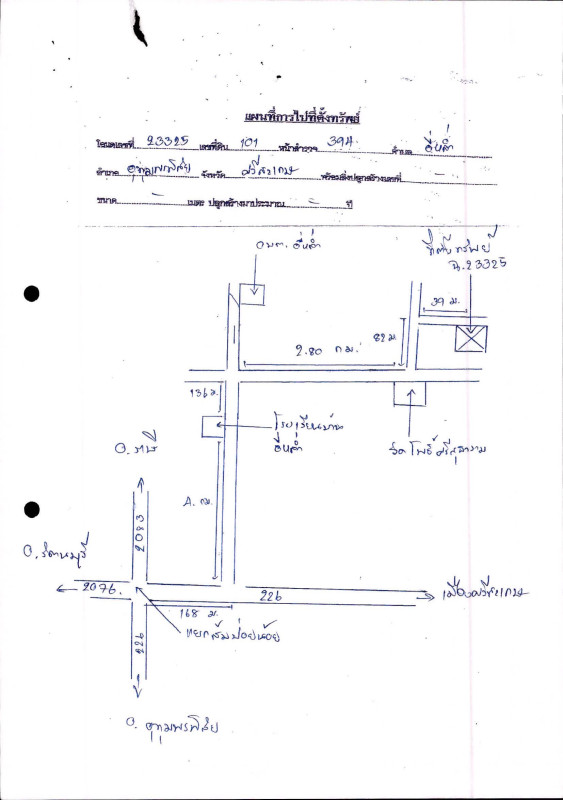 แผนที่การไปที่ตั้งทรัพย์
โฉนดเลขที่ 23325 เลขที่ดิน 101 หน้าสำรวจ 394 ตำบล อี่หล่ำ
อำเภอ อุทุมพรพิสัย จังหวัด ศรีสะเกษ พร้อมสิ่งปลูกสร้างเลขที่ -
ขนาด - เมตร ปลูกสร้างมาประมาณ - ปี
อบต. อี่หล่ำ
ที่ตั้งทรัพย์
ฉ.23325
39 ม.
82 ม.
2.80 กม.
136 ม.
โรงเรียนบ้าน
อี่หล่ำ
วัดโพธิ์ศรีสุธาราม
อ. ราษี
กม.
2083
อ. รัตนบุรี
2076
226
เมืองศรีสะเกษ
168 ม.
แยกส้มป่อยน้อย
226
อ. อุทุมพรพิสัย